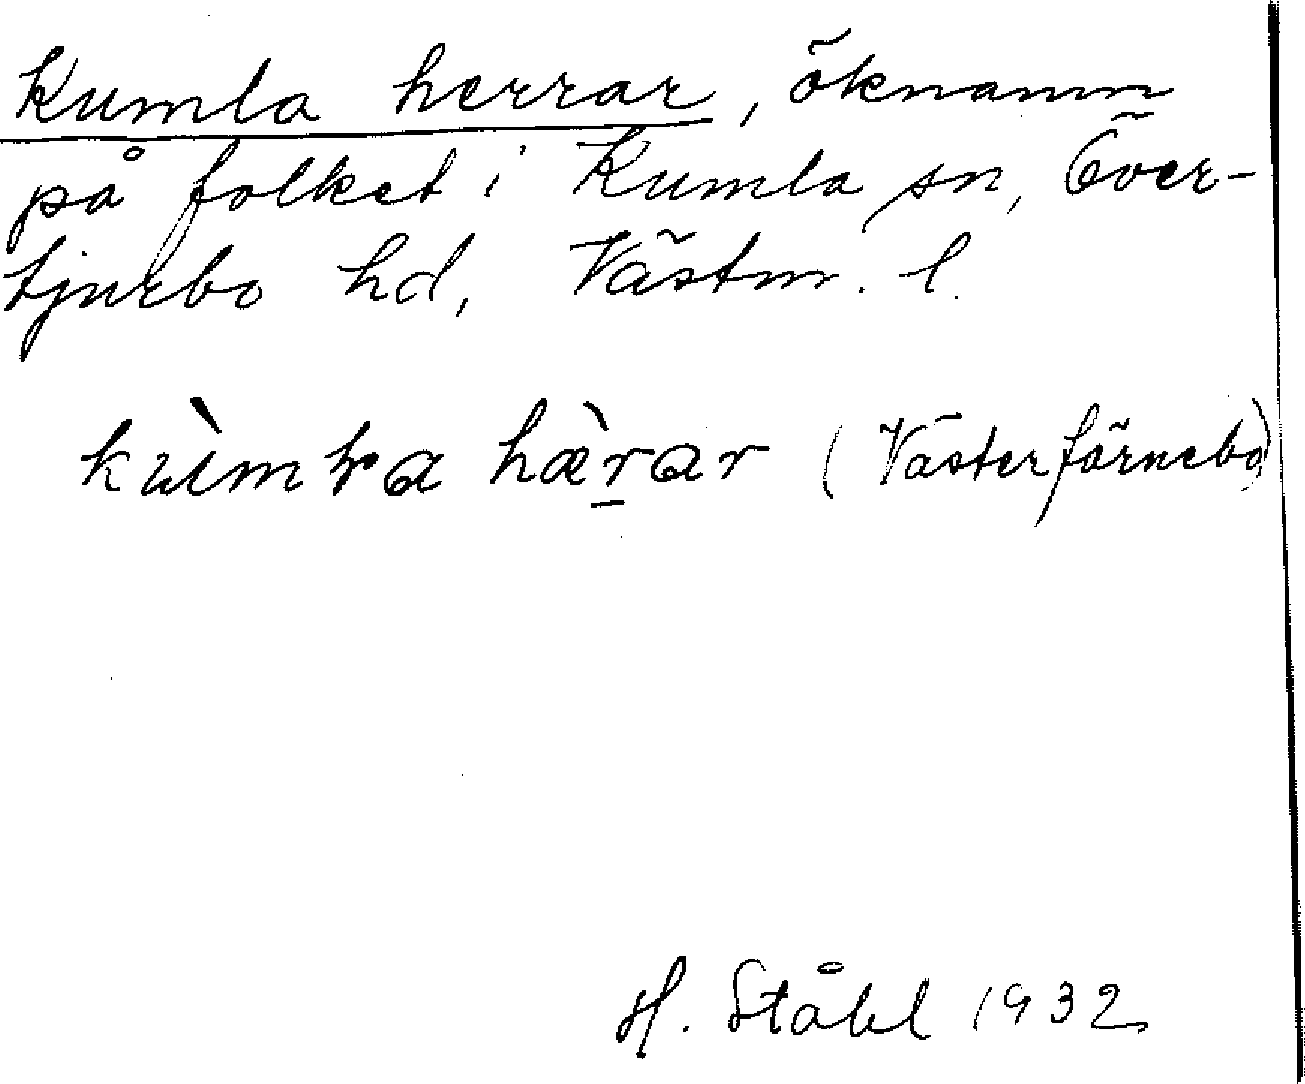 Kumla herrar, öknamn
på folket i Kumla sn, Över-
tjurbo hd, Västm. l.
hærar (Västerfärnebo)
H. Ståhl 1932